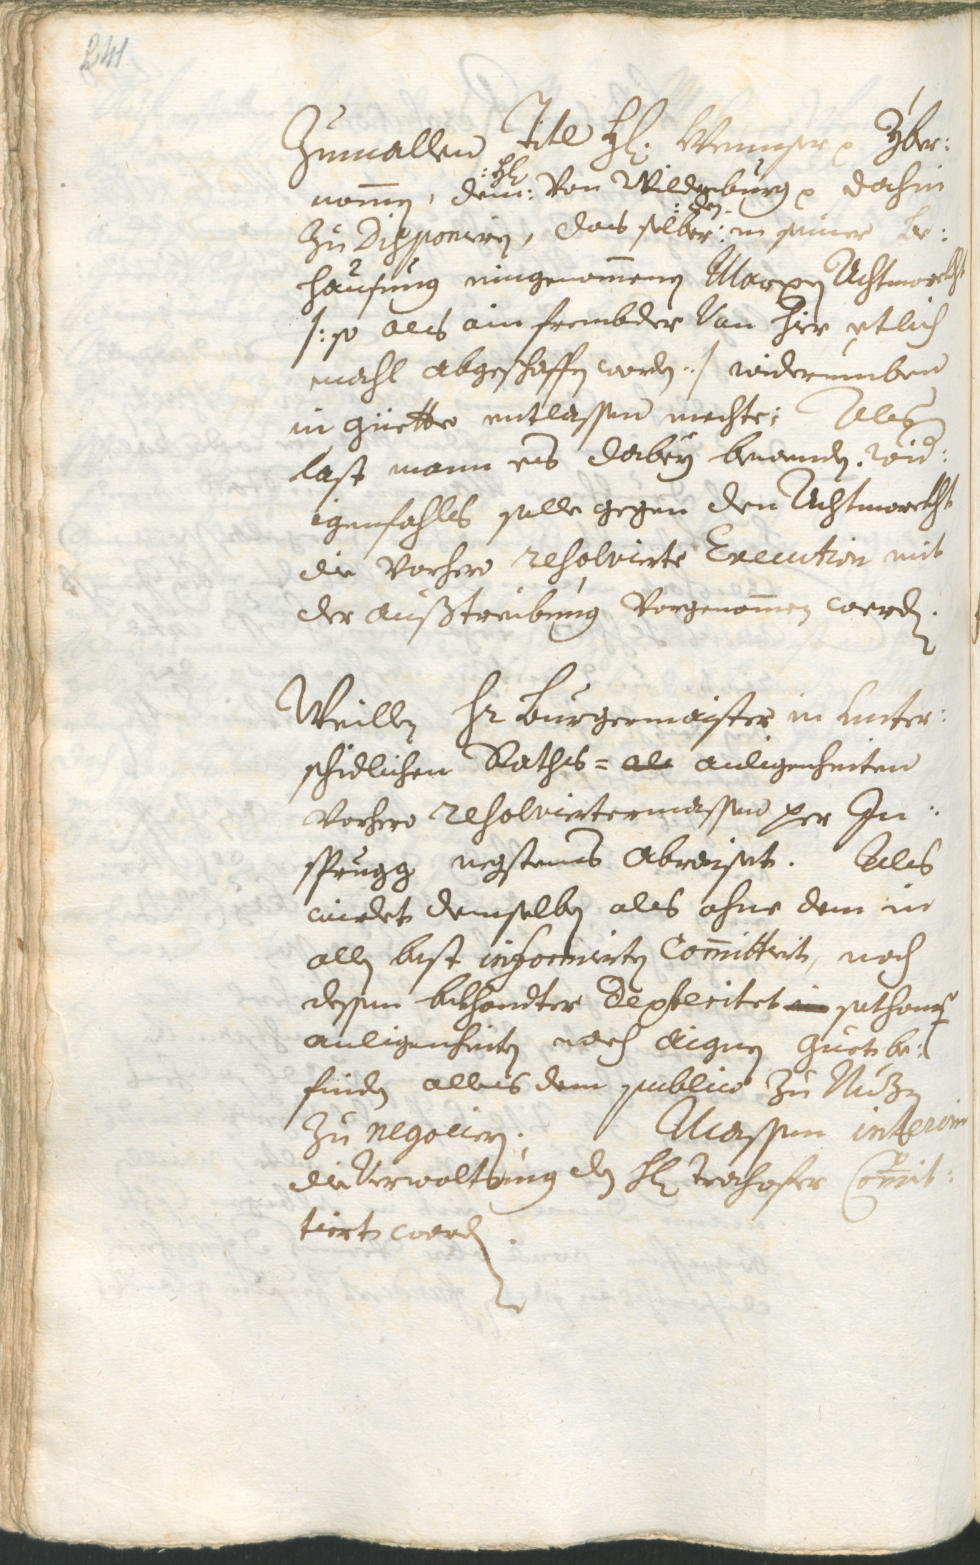 241
Zumallen Titl H: Wenser p Yber:
nomen, dem :H: Von Wildenburg p dahin
zu Disponirn, das selber :den: in seiner be:
hausung eingenomenen Marxen Achtmarckht
/: so als ain frembder Von hier etlich
mahl abgeschafft worden :/ widerumben
in güette entlassen mechte; Als
last mann es dabey bewenden. wid:
igenfahls solle gegen den Achtmarckht
die Vorhero resolvierte Execution mit
der außtreibung Vorgenomen werden.
Weillen Hr Burgermaister in Unter:
schidlichen Raths= anligenheiten
Vorhero resolviertermassen per In:
sprugg negstens abraiset. Als
wirdet demselben als ohne dem in
allen best informierten Comittiert, nach
dessen bekhandter Dexteritet sothane
anligenheiten nach aignen guetbe:
finden alles dem publico zu Nuzen
zu negocirn. Massen interim
die Verwaltung den H: Trochofer Comit:
tiert worden.